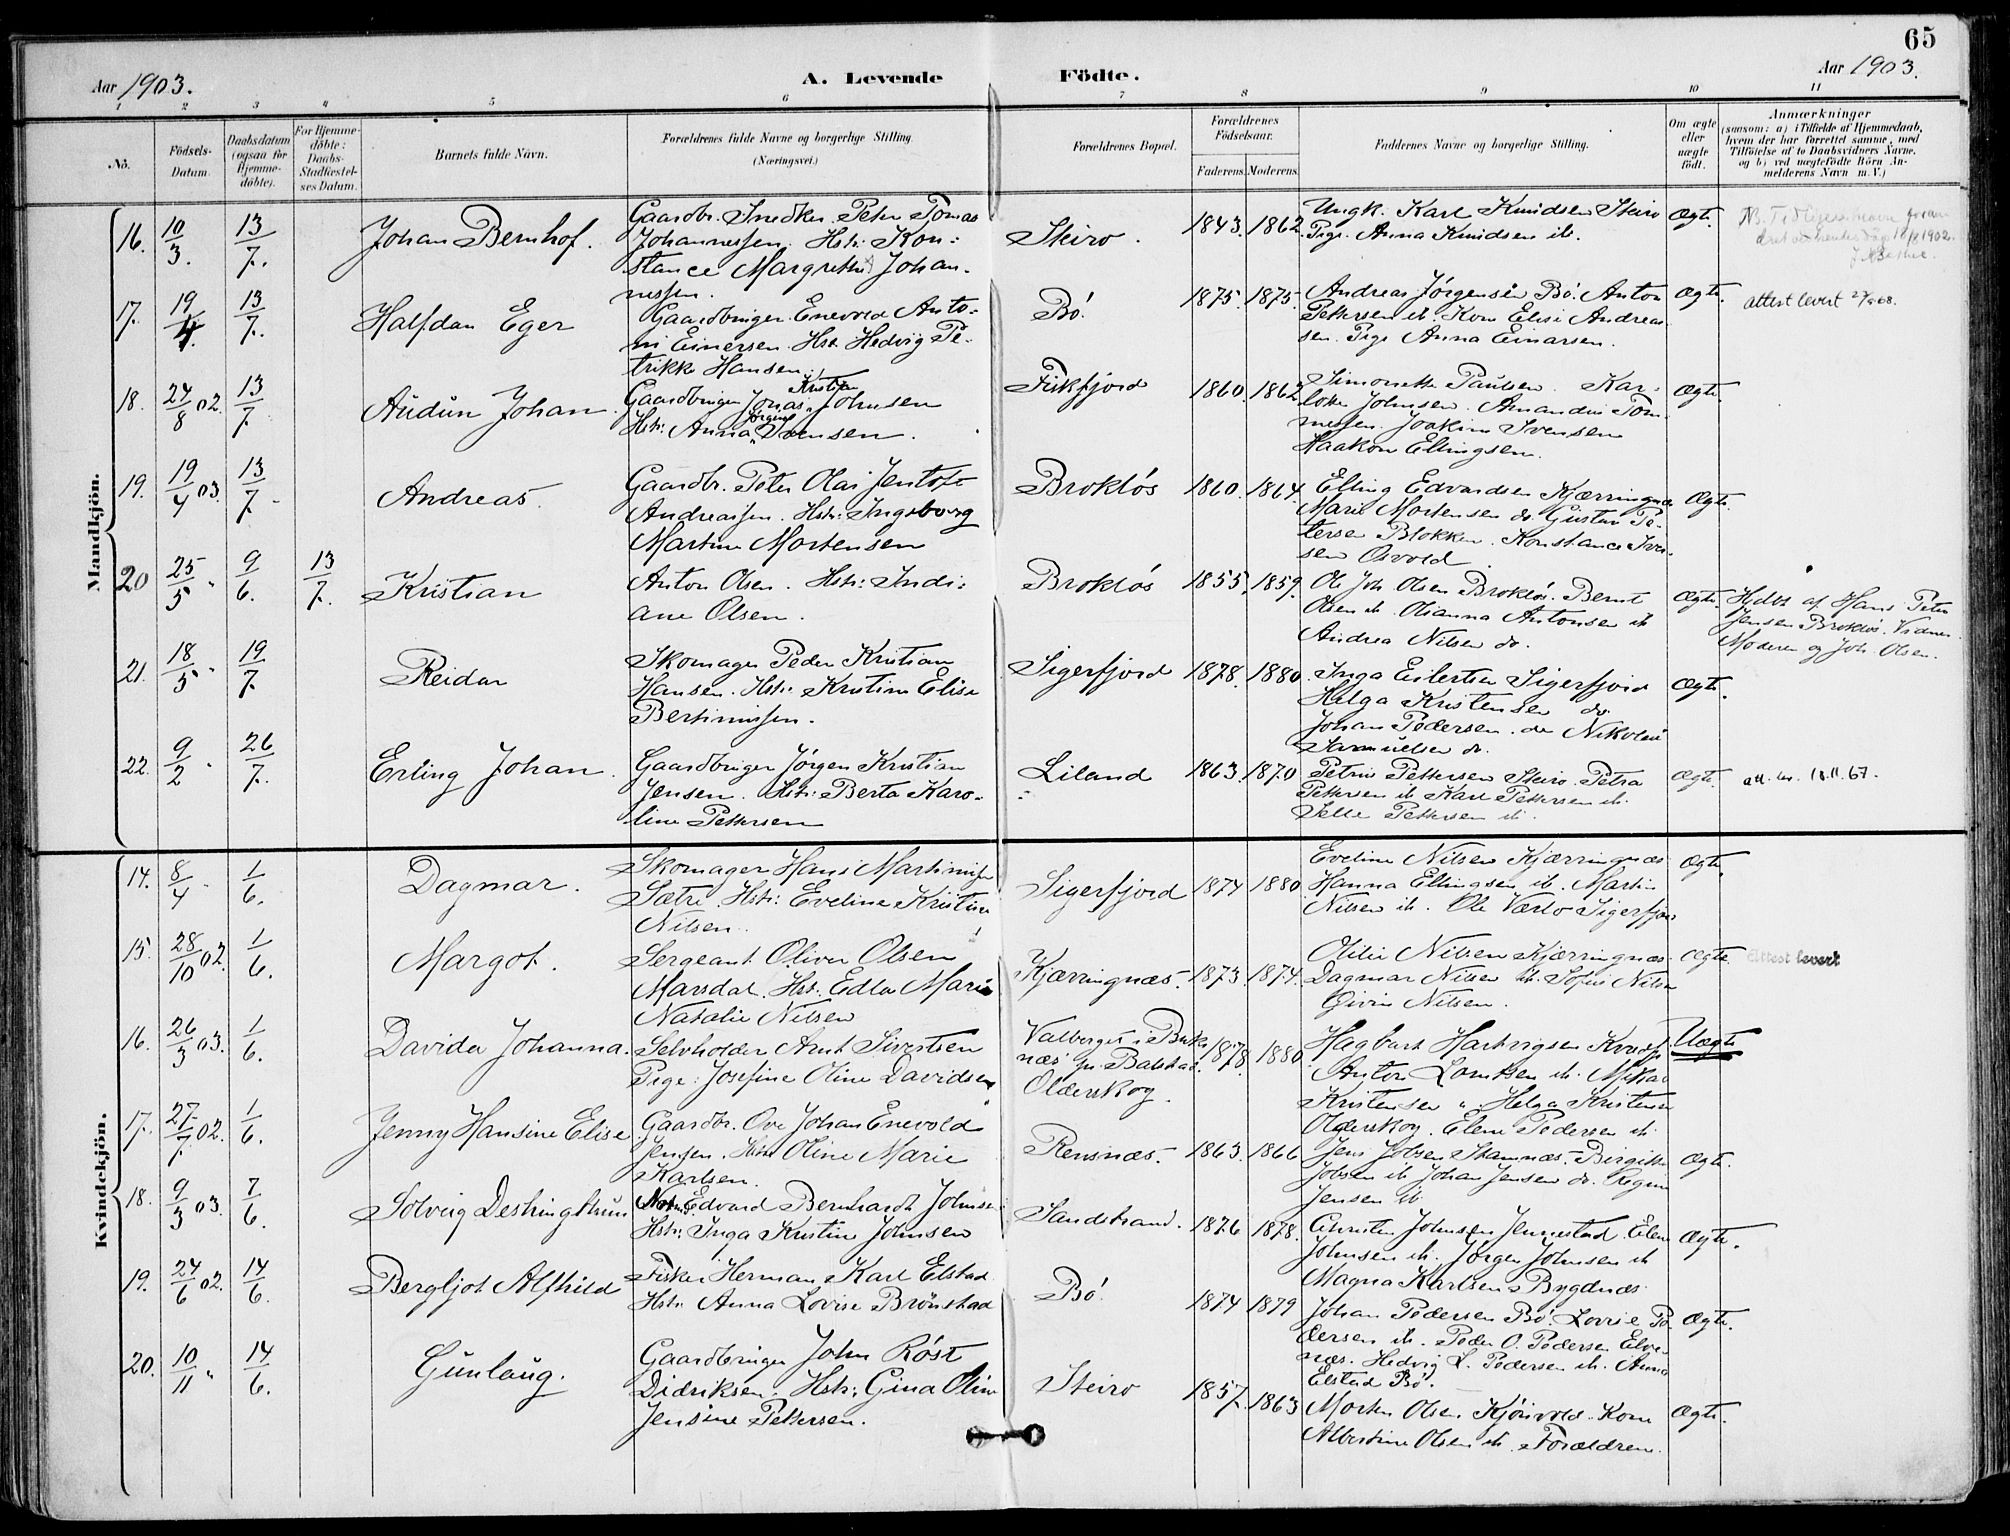 65
Aar 1903.
A. Levende Fødte.
Aar 1903.
1 2 3 4 5 6 7 8 9 10 11
No.
Fødsels-Datum.
Daabsdatum (ogsaa for Hjemme-døbte).
For Hjemme-døbte: Daabs-Stadfæstel-ses Datum.
Barnets fulde Navn.
Forældrenes fulde Navne og borgerlige Stilling.
(Næringsvei.)
Forældrenes Bopæl.
Forældrenes Fødselsaar.
Faderens. Moderens.
Faddernes Navne og borgerlige Stilling.
Om ægte eller uægte født.
Anmærkninger
(saasom: a) i Tilfælde af Hjemmedaab, hvem der har forrettet samme, med Tilføielse af to Daabsvidners Navne. og b) ved uægtefødte Børn An-melderens Navn m. V.)
Mandkjön.
16. 10/3. 13/7. Johan Bernhof.
Gaardbr. Snedker Peter Tomas
Johannessen. Hstr: Kon=
stance Margrethe Johan-
nessen.
Skiro. 1843. 1862
Ungk. Karl Knudsen Steiro
Pige Anna Knudsen ib.
Ægte.
17. 19/4. 13/7. Halfdan Eger
Gaardbruger Enevold Anto-
ni Einersen. Hstr Hedvig Pe-
trikke Hansen.
Bö. 1875. 1875
Andreas Jørgensen Bö. Anton
Pettersen ib. Kone Elise Andreas
sen. Pige Anna Einarsen.
Ægte. attest levert
18. 24/8 02. 13/7. Audun Johan.
Gaardbruger Jonas Kristian Johnsen
Hstr: Anna Jørgine Svensen.
Fiskfjord 1860. 1862
Simonette Paulsen. Kar-
lotte Johnsen. Amandus Tom-
nessen. Joakim Svensen
Haakon Ellingsen.
Ægte.
19. 19/4 03. 13/7. Andreas.
Gaardbr. Peter Olai Jentoft
Andreassen. Hstr: Ingeborg
Martine Mortensen
Brokløs 1860. 1864.
Elling Edvardsen Kjærringnæs
Marie Mortensen do. Gustav Pe-
tersen Blokken. Konstance Iver-
sen Osvold.
Ægte.
20 25/5 " 9/6. 13/7. Kristian
Anton Olsen. Hstr: Indi=
ane Olsen.
Brokløs 1855. 1859.
Ole Joh. Olsen Brokløs. Bernt
Olsen ib. Olianna Antonsen ib
Andrea Nilsen do.
Ægte. Hdbt af Hans Peter
Jensen Brokløs. Vidner
Moderen og Joh. Olsen.
21. 18/5 " 19/7. Reidar
Skomager Peder Kristian
Hansen. Hstr: Kristine Elise
Bertinussen.
Sigerfjord 1878. 1880.
Inga Eilertsen Sigerfjord
Helga Kristensen do.
Johan Pedersen do Nikolai
Samuelsen do.
Ægte.
22. 9/2 " 26/7. Erling Johan.
Gaardbruger Jørgen Kristian
Jensen. Hstr: Berta Karo-
line Pettersen
Liland 1863. 1870
Petrus Pettersen Steiro. Petra
Pettersen ib Karl Pettersen ib.
Selle Pettersen ib.
Ægte. att. lev. 18.11.67.
Kvindekjön.
14. 8/4 " 1/6. Dagmar.
Skomager Hans Martinussen
Sætre. Hstr: Eveline Kristine
Nilsen.
Sigerfjord 1874 1880
Eveline Nilsen Kjærringnæs
Hanna Ellingsen ib. Martin
Nilsen ib. Ole Værlo Sigerfjord
Ægte.
15. 28/10 02. 1/6. Margot.
Sergeant Oliver Olsen
Marsdal. Hstr. Edla Marie
Natalie Nilsen
Kjærringnæs. 1873. 1874.
Otilie Nilsen Kjærringnæs
Dagmar Nilsen ib. Sofus Nilsen
Givin Nilsen.
Ægte. Attest levert
16. 26/3 03. 1/6. Davida Johanna.
Selvholder Arnt Sivertsen
Pige: Josefine Oline Davidsen
Valberget i Buks
næs pr. Balstad.
Olderskog.
1878. 1880
Hagbart Hartvigsen
Anton Lorntsen ib. Mikal
Kristensen ". Helga Kristensen
Olderskog. Elene Pedersen ib.
Uægte
17. 27/7 02. 1/6. Jenny Hansine Elise
Gaardbr. Ove Johan Enevold
Jensen. Hstr Oline Marie
Karlsen.
Rensnæs. 1863. 1866
Jens Jobsen Skamnæs. Bergitte
Jobsen ib Johan Jensen do.
Jensen ib
Ægte.
18. 9/3 03. 7/6. Solveig Destingthun
Edvard Bernhardt Johnsen
Hstr: Inga Kristine Johnsen
Sandstrand. 1876 1878.
Christen Johnsen Jennestad. Elen
Johnsen ib. Jørgen Johnsen ib
Magna Karlsen Bygdnæs
Ægte.
19. 24/6 02. 14/6. Bergljot Alfhild
Fisker Herman Karl Elstad
Hstr Anna Lovise Brønstad
Bö. 1874 1879
Johan Pedersen Bö. Lovise Pe-
dersen ib. Peder O. Pedersen Elve-
næs. Hedvig L. Pedersen ib. Anna
Elstad Bö.
Ægte.
20. 10/11 " 14/6. Gunlaug.
Gaardbruger John Röst
Didriksen. Hstr: Gina Oline
Jensine Pettersen.
Steiro 1857. 1863
Morten Olsen Kjörvold. Kone
Albertine Olsen ib. Forældrene.
Ægte.